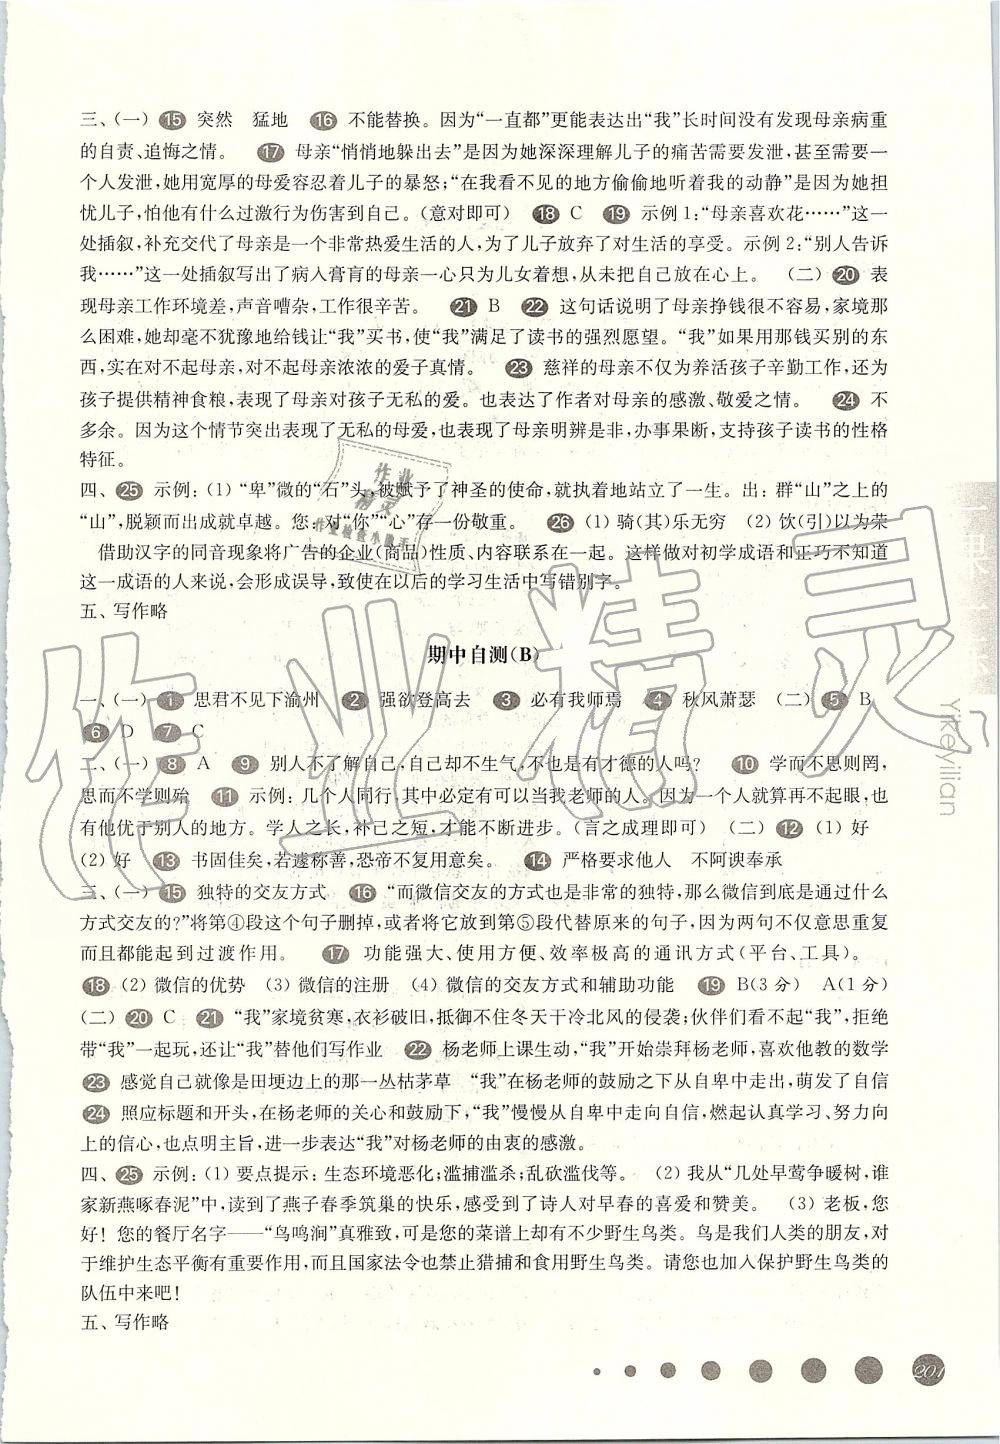 三、(一) 15 突然　猛地　16 不能替换。因为“一直都”更能表达出“我”长时间没有发现母亲病重
的自责、追悔之情。　17 母亲“悄悄地躲出去”是因为她深深理解儿子的痛苦需要发泄,甚至需要一
个人发泄,她用宽厚的母爱容忍着儿子的暴怒;“在我看不见的地方偷偷地听着我的动静”是因为她担
忧儿子,怕他有什么过激行为伤害到自己。(意对即可)　18 C　19 示例1:“母亲喜欢花……”这一
处插叙,补充交代了母亲是一个非常热爱生活的人,为了儿子放弃了对生活的享受。示例2:“别人告诉
我……”这一处插叙写出了病入膏肓的母亲一心只为儿女着想,从未把自己放在心上。　(二) 20 表
现母亲工作环境差,声音嘈杂,工作很辛苦。　21 B　22 这句话说明了母亲挣钱很不容易,家境那
么困难,她却毫不犹豫地给钱让“我”买书,使“我”满足了读书的强烈愿望。“我”如果用那钱买别的东
西,实在对不起母亲,对不起母亲浓浓的爱子真情。　23 慈祥的母亲不仅为养活孩子辛勤工作,还为
孩子提供精神食粮,表现了母亲对孩子无私的爱。也表达了作者对母亲的感激、敬爱之情。　24 不
多余。因为这个情节突出表现了无私的母爱,也表现了母亲明辨是非,办事果断,支持孩子读书的性格
特征。
四、25 示例:(1)“卑”微的“石”头,被赋予了神圣的使命,就执着地站立了一生。出:群“山”之上的
“山”,脱颖而出成就卓越。您:对“你”“心”存一份敬重。　26 (1) 骑(其)乐无穷　(2) 饮(引)以为荣
借助汉字的同音现象将广告的企业(商品)性质、内容联系在一起。这样做对初学成语和正巧不知道
这一成语的人来说,会形成误导,致使在以后的学习生活中写错别字。
五、写作略
期中自测(B)
一、(一) 1 思君不见下渝州　2 强欲登高去　3 必有我师焉　4 秋风萧瑟　(二) 5 B
6 D　7 C
二、(一) 8 A　9 别人不了解自己,自己却不生气,不也是有才德的人吗?　10 学而不思则罔,
思而不学则殆　11 示例:几个人同行,其中必定有可以当我老师的人。因为一个人就算再不起眼,也
有他优于别人的地方。学人之长,补己之短,才能不断进步。(言之成理即可)　(二) 12 (1) 好
(2) 好　13 书固佳矣,若遽称善,恐帝不复用意矣。　14 严格要求他人　不阿谀奉承
三、(一) 15 独特的交友方式　16 “而微信交友的方式也是非常的独特,那么微信到底是通过什么
方式交友的?”将第④段这个句子删掉,或者将它放到第⑤段代替原来的句子,因为两句不仅意思重复
而且都能起到过渡作用。　17 功能强大、使用方便、效率极高的通讯方式(平台、工具)。
18 (2) 微信的优势　(3) 微信的注册　(4) 微信的交友方式和辅助功能　19 B(3分)　A(1分)
(二) 20 C　21 “我”家境贫寒,衣衫破旧,抵御不住冬天干冷北风的侵袭;伙伴们看不起“我”,拒绝
带“我”一起玩,还让“我”替他们写作业　22 杨老师上课生动,“我”开始崇拜杨老师,喜欢他教的数学
23 感觉自己就像是田埂边上的那一丛枯茅草　“我”在杨老师的鼓励之下从自卑中走出,萌发了自信
24 照应标题和开头,在杨老师的关心和鼓励下,“我”慢慢从自卑中走向自信,燃起认真学习、努力向
上的信心,也点明主旨,进一步表达“我”对杨老师的由衷的感激。
四、25 示例:(1) 要点提示:生态环境恶化;滥捕滥杀;乱砍滥伐等。　(2) 我从“几处早莺争暖树,谁
家新燕啄春泥”中,读到了燕子春季筑巢的快乐,感受到了诗人对早春的喜爱和赞美。　(3) 老板,您
好!您的餐厅名字——“鸟鸣涧”真雅致,可是您的菜谱上却有不少野生鸟类。鸟是我们人类的朋友,
对于维护生态平衡有重要作用,而且国家法令也禁止猎捕和食用野生鸟类。请您也加入保护野生鸟类的
队伍中来吧!
五、写作略
Yikeyilian
201
作业精灵
作业
精灵
作业检查小助手